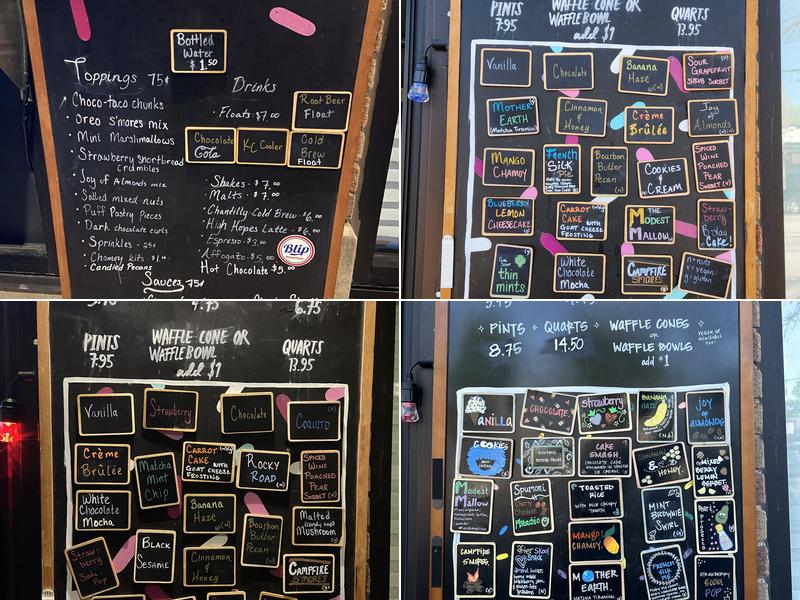 Bottled
Water
$1.50
Toppings 75¢
Choco-taco chunks
Oreo s'mores mix
Mini Marshmallows
Strawberry Shortbread
crumbles
Joy of Almonds mix
Salted mixed nuts
Puff Pastry pieces
Dark chocolate curls
Sprinkles - 25¢
Chamoy kits - $1.00
Candied Pecans
Sauces 75¢
Drinks
Floats: $7.00
Root Beer
Float
Chocolate
Cola
KC Cooler
Cold
Brew
Float
Shakes - $7.00
Malts - $
Chantilly Cold Brew - $6.00
High Hopes Latte - $6.00
Espresso - $3.00
Affogato - $5.00
Hot Chocolate $5.00
Blip
PINTS
7.95
WAFFLE CONE OR
WAFFLE BOWL
add $1
QUARTS
13.95
Vanilla
Chocolate
Banana
Haze
Sour
Grapefruit
Shrub Sorbet
Mother
Earth
(Matcha Tiramisu)
Cinnamon
&
Honey
Crème
Brûlée
Joy
of
Almonds
Mango
Chamoy
French
Silk
Pie
Bourbon
Butter
Pecan
Cookies
&
Cream
Spiced
Wine
Poached
Pear
Sorbet (v)
Blueberry
Lemon
Cheesecake
Carrot
Cake with
Goat Cheese
Frosting
The
Modest
Mallow
Strawberry
B-day
Cake!
thin
mints
White
Chocolate
Mocha
Campfire
S'mores
n = nuts
v = vegan
g = gluten
6.75
PINTS
7.95
WAFFLE CONE OR
WAFFLE BOWL
add $1
QUARTS
13.95
Vanilla
Strawberry
Chocolate
Coquito
Crème
Brûlée
Matcha
Mint
Chip
Carrot
Cake with
Goat Cheese
Frosting
Rocky
Road
Spiced
Wine
Poached
Pear
Sorbet (v)
White
Chocolate
Mocha
Banana
Haze
Bourbon
Butter
Pecan
Malted
Mushroom
Strawberry
Soda
Pop
Black
Sesame
Cinnamon
&
Honey
Campfire
S'mores
PINTS
8.75
QUARTS
14.50
WAFFLE CONES
or
WAFFLE BOWLS
add $1
Vanilla
Chocolate
Strawberry
Banana
Haze
Joy
of
Almonds
Cookies
Cake
Smash
Cinnamon
&
Honey
Mixed
Berry
Lemon
Sorbet
Modest
Mallow
Spumoni
Cherry
Chocolate
Pistachio
Toasted
Rice
Mint
Brownie
Swirl
Mango
Campfire
S'mores
After School
Snack
Mother
Earth
Matcha Tiramisu
French
Silk
Pie
Strawberry
Soda
Pop